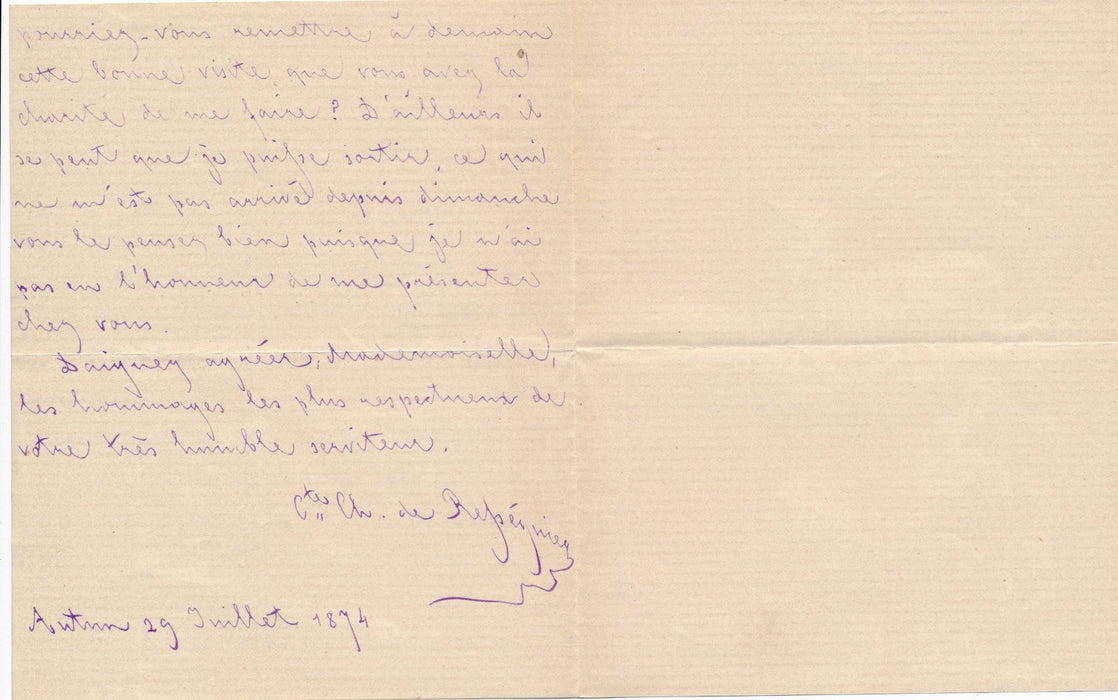 pourriez-vous remettre à demain
cette bonne visite que vous avez la
charité de me faire ? D'ailleurs il
se peut que je puisse sortir, ce qui
ne m'est pas arrivé depuis dimanche
vous le pensez bien puisque je n'ai
pas eu l'honneur de me présenter
chez vous.
Daignez agréer, Mademoiselle,
les hommages les plus respectueux de
votre très humble serviteur.
Cte Ch. de
Autun 29 Juillet 1874